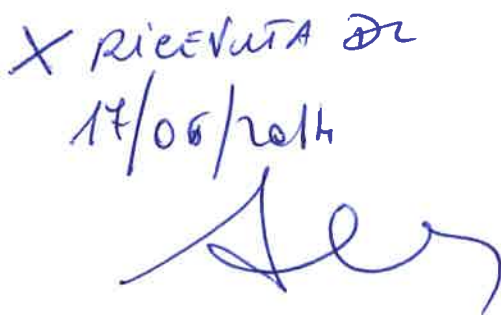 X RICEVUTA
17/06/2014